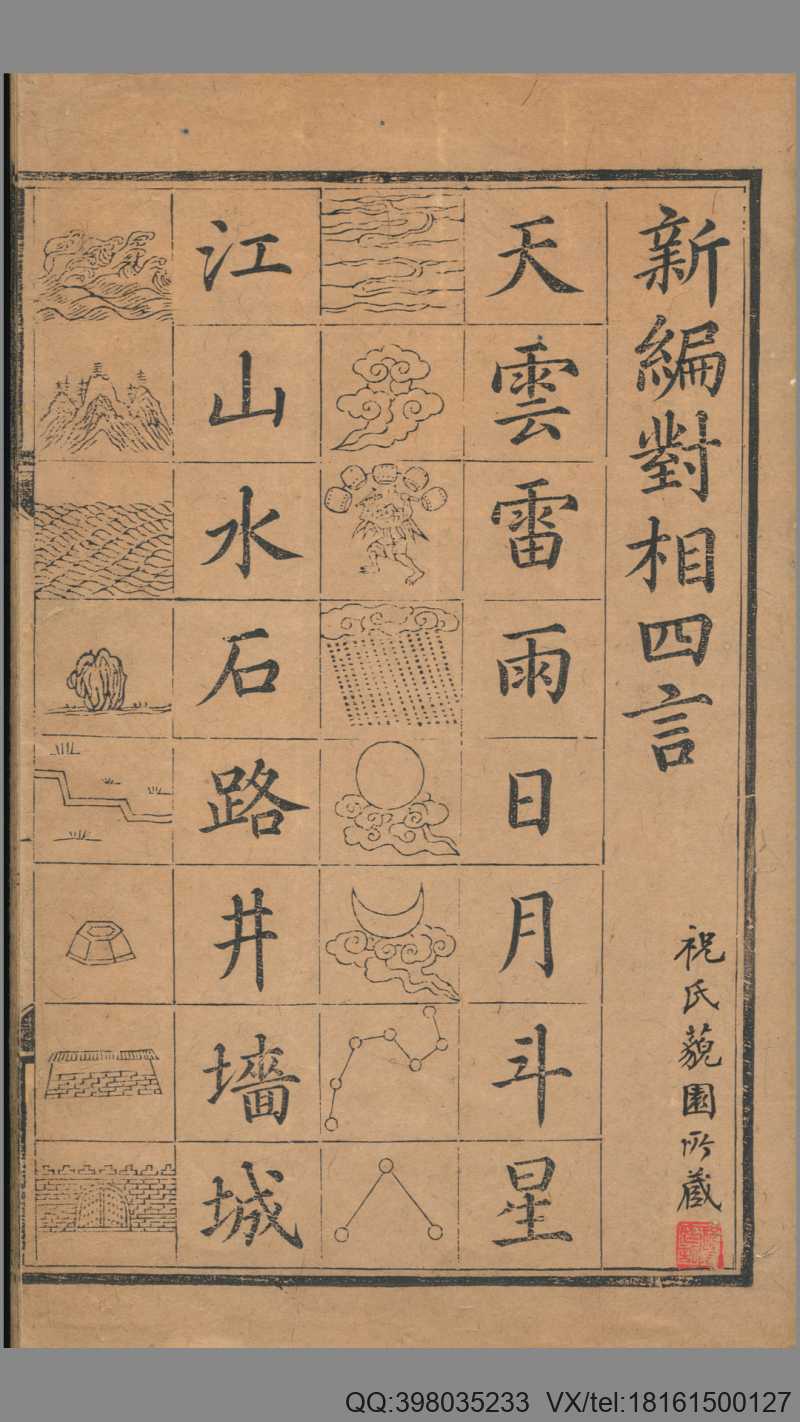 新編對相四言
祝氏藐園所藏
天雲雷雨日月斗星
江山水石路井墻城
QQ:398035233 VX/tel:18161500127